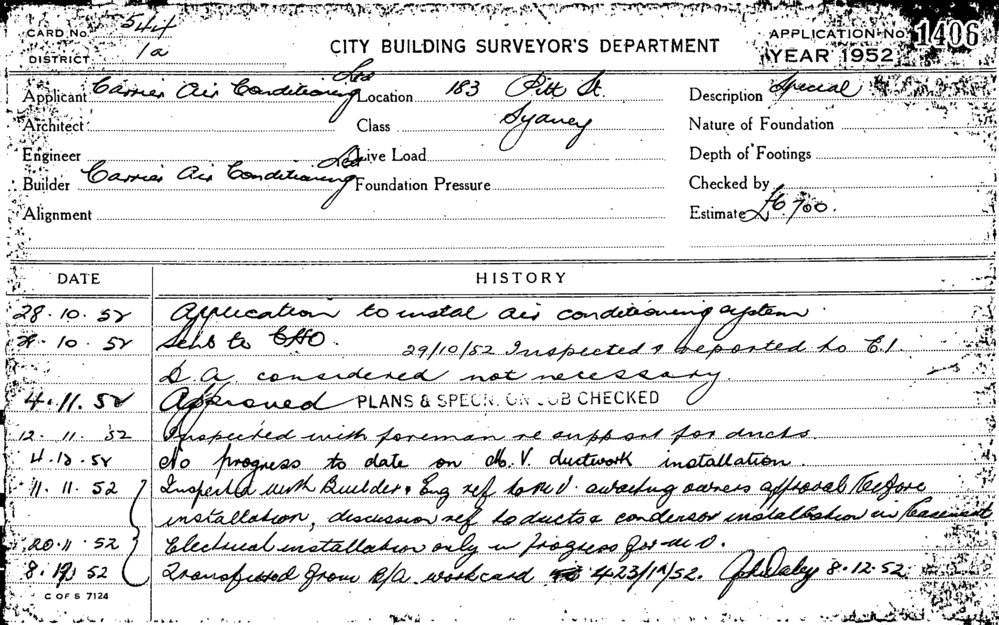 CARD No. 544
DISTRICT 1a
CITY BUILDING SURVEYOR'S DEPARTMENT
APPLICATION No. 1406
YEAR 1952
Applicant Carrier Air Conditioning Ltd
Location 183 Pitt St.
Description Special
Architect
Class Sydney
Nature of Foundation
Engineer
Live Load
Depth of Footings
Builder Carrier Air Conditioning Ltd
Foundation Pressure
Checked by
Alignment
Estimate £6,700.
DATE HISTORY
28.10.52 Application to instal air conditioning system
28.10.52 Sent to CHO. 29/10/52 Inspected & reported to C.I.
D.A. considered not necessary
4.11.52 Approved PLANS & SPECN. ON JOB CHECKED
12.11.52 Inspected with foreman re support for ducts.
4.12.52 No progress to date on M.V. ductwork installation.
11.11.52 Inspected with Builder & Eng ref to M.V. awaiting owners approval before
installation, discussion ref to ducts & condensor installation in basement
20.11.52 Electrical installation only in progress for M.V.
8.12.52 Transferred from B/A workcard 423/1A/52. 8.12.52
C OF S 7124